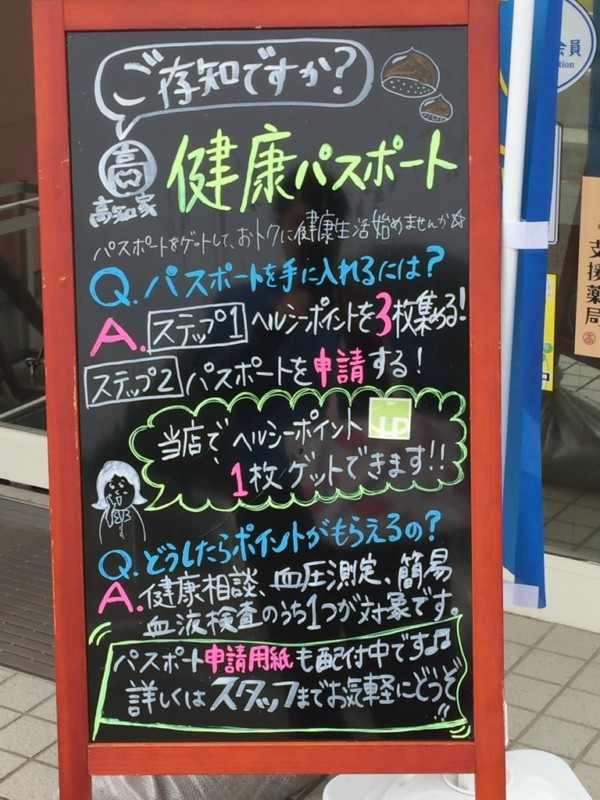 ご存知ですか?
高知家
健康パスポート
パスポートをゲットして、おトクに健康生活始めませんか☆
Q.パスポートを手に入れるには?
A.ステップ1 ヘルシーポイントを3枚集める!
ステップ2 パスポートを申請する!
当店で、ヘルシーポイント
1枚ゲットできます!!
Q.どうしたらポイントがもらえるの?
A.健康相談、血圧測定、簡易
血液検査のうち1つが対象です。
パスポート申請用紙も配付中です♫
詳しくはスタッフまでお気軽にどうぞ!!
会員
支援薬局